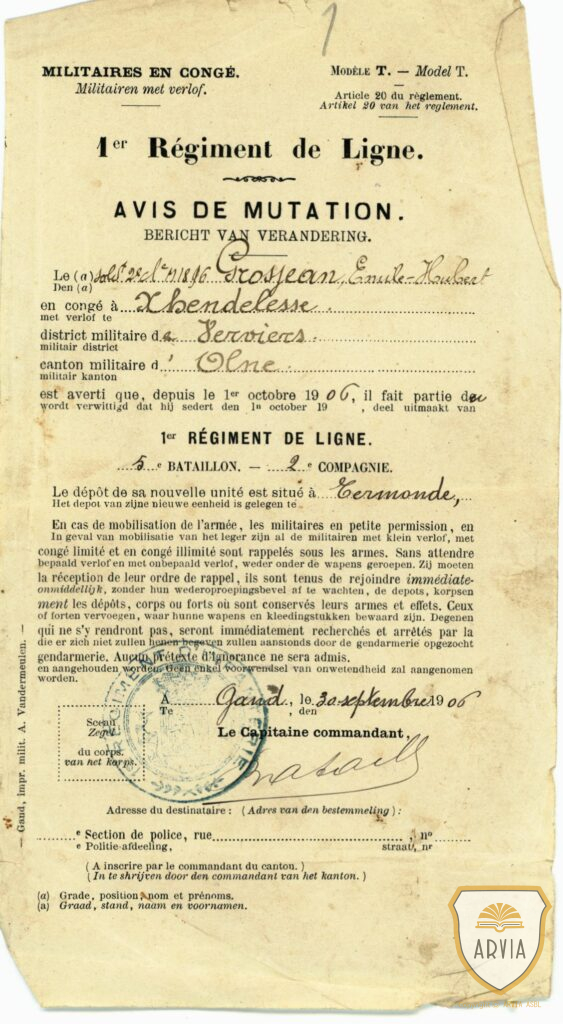 1
MILITAIRES EN CONGÉ.
Militairen met verlof.
MODÈLE T. — Model T.
Article 20 du règlement.
Artikel 20 van het reglement.
1er Régiment de Ligne.
AVIS DE MUTATION.
BERICHT VAN VERANDERING.
Le (a) soldt 2e cl. Grosjean, Emile-Hubert
Den (a)
en congé à Xhendelesse.
met verlof te
district militaire de Verviers.
militair district
canton militaire d' Olne.
militair kanton
est averti que, depuis le 1er octobre 1906, il fait partie du
wordt verwittigd dat hij sedert den 1n october 19 , deel uitmaakt van
1er RÉGIMENT DE LIGNE.
5e BATAILLON. — 2e COMPAGNIE.
Le dépôt de sa nouvelle unité est situé à Termonde,
Het depot van zijne nieuwe eenheid is gelegen te
En cas de mobilisation de l'armée, les militaires en petite permission, en
In geval van mobilisatie van het leger zijn al de militairen met klein verlof, met
congé limité et en congé illimité sont rappelés sous les armes. Sans attendre
bepaald verlof en met onbepaald verlof, weder onder de wapens geroepen. Zij moeten
la réception de leur ordre de rappel, ils sont tenus de rejoindre immédiate-
onmiddelijk, zonder hun wederoproepingsbevel af te wachten, de depots, korpsen
ment les dépôts, corps ou forts où sont conservés leurs armes et effets. Ceux
of forten vervoegen, waar hunne wapens en kleedingstukken bewaard zijn. Degenen
qui ne s'y rendront pas, seront immédiatement recherchés et arrêtés par la
die er zich niet zullen henen begeven zullen aanstonds door de gendarmerie opgezocht
gendarmerie. Aucun prétexte d'ignorance ne sera admis.
en aangehouden worden. Geen enkel voorwendsel van onwetendheid zal aangenomen
worden.
A Gand, le 30 septembre 1906
Te , den
Sceau
Zegel
du corps.
van het korps.
Le Capitaine commandant,
Adresse du destinataire : (Adres van den bestemmeling) :
e Section de police, rue , no
e Politie-afdeeling, straat, nr
(A inscrire par le commandant du canton.)
(In te schrijven door den commandant van het kanton.)
(a) Grade, position, nom et prénoms.
(a) Graad, stand, naam en voornamen.
— Gand, impr. milit. A. Vandermeulen. —
ARVIA